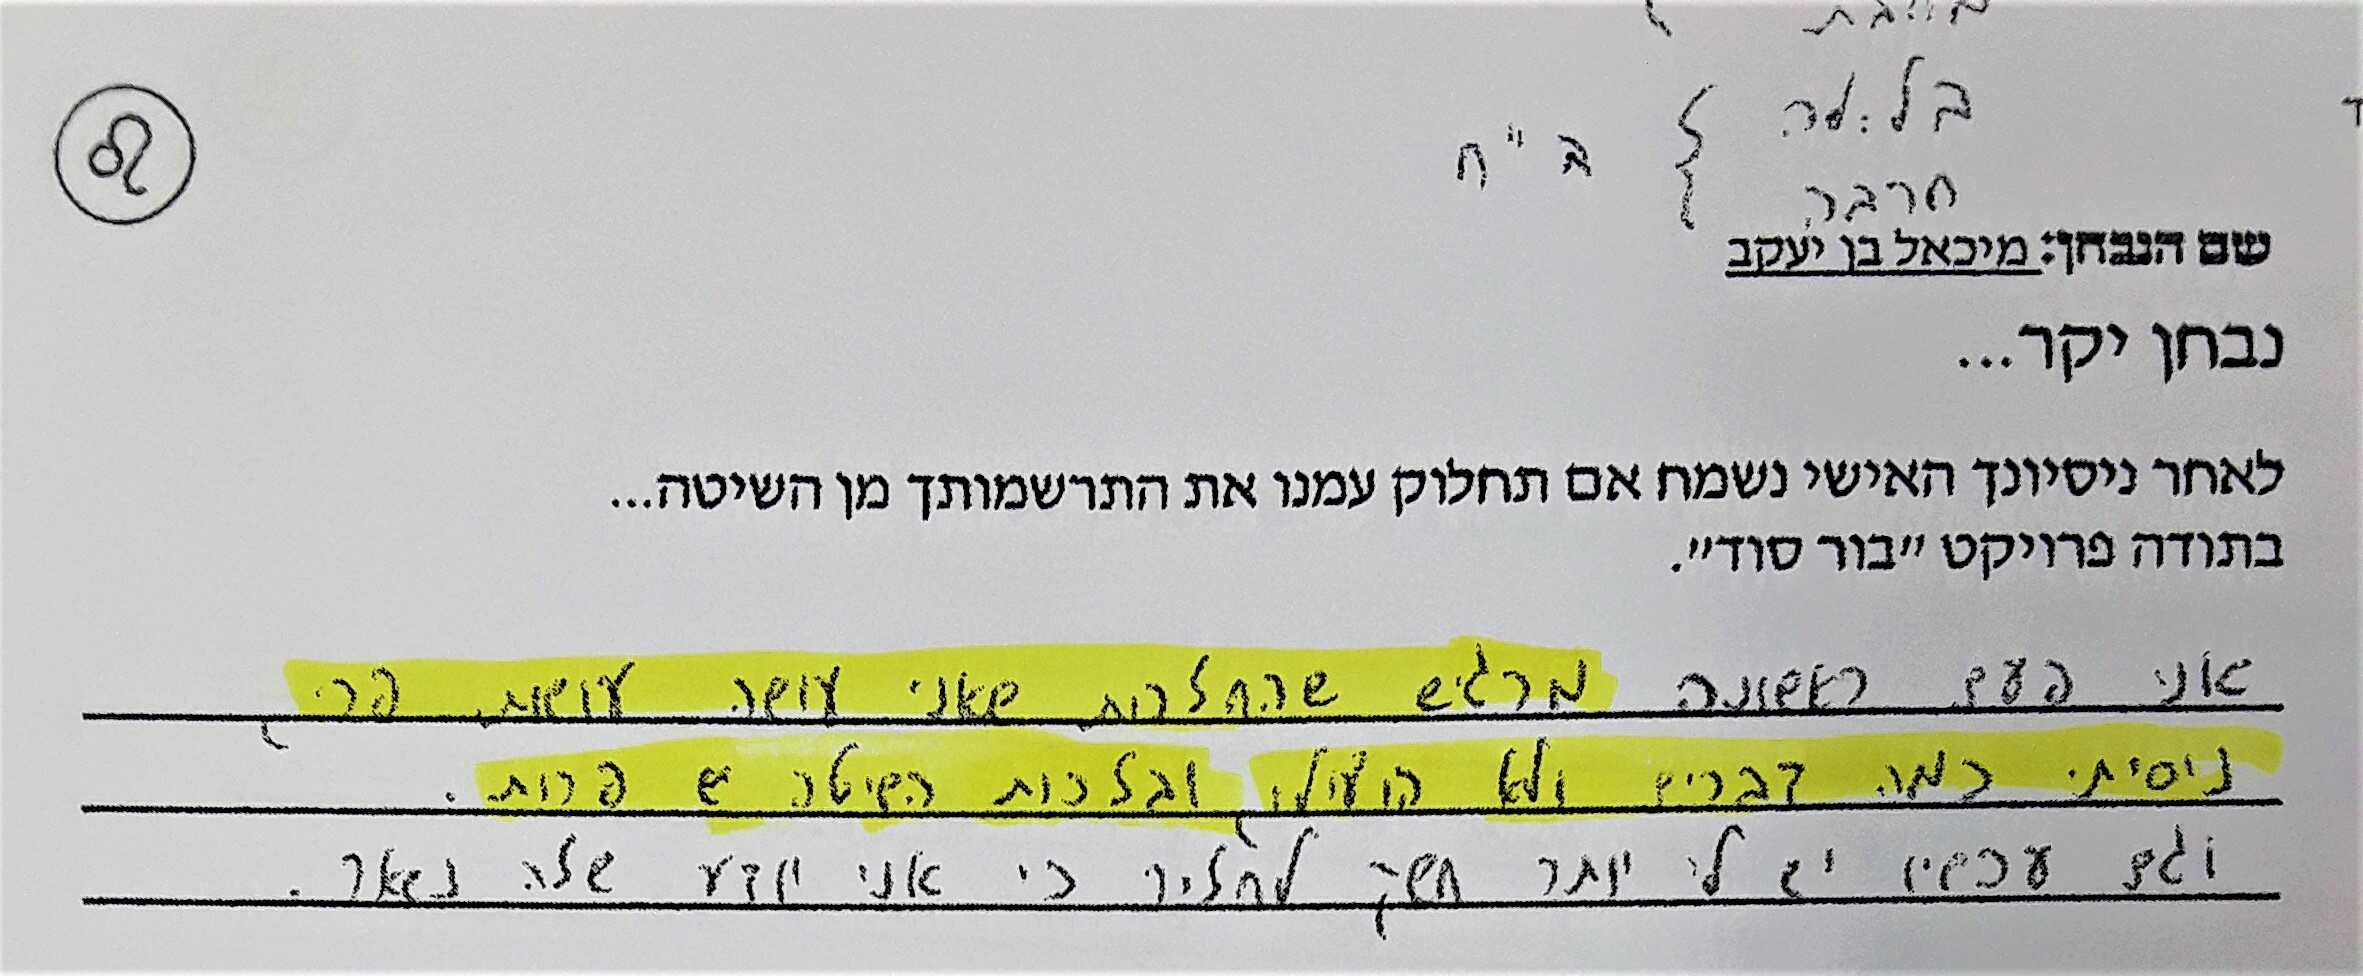 ב"ח
חרבה
שם הנבחן: מיכאל בן יעקב
נבחן יקר...
לאחר ניסיונך האישי נשמח אם תחלוק עמנו את התרשמותך מן השיטה...
בתודה פרויקט "בור סוד".
אני פעם ראשונה מרגיש שהחזרות שאני עושה עושות פרי,
ניסיתי כמה דברים ולא הועילו, ובזכות השיטה יש פרות.
וגם עכשיו יש לי יותר חשק לחזור כי אני יודע שזה נשאר.